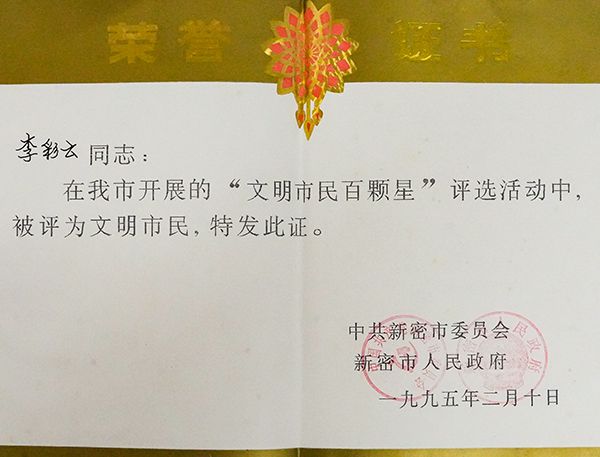 荣誉证书
李彩云同志：
在我市开展的“文明市民百颗星”评选活动中，
被评为文明市民，特发此证。
中共新密市委员会
新密市人民政府
一九九五年二月十日